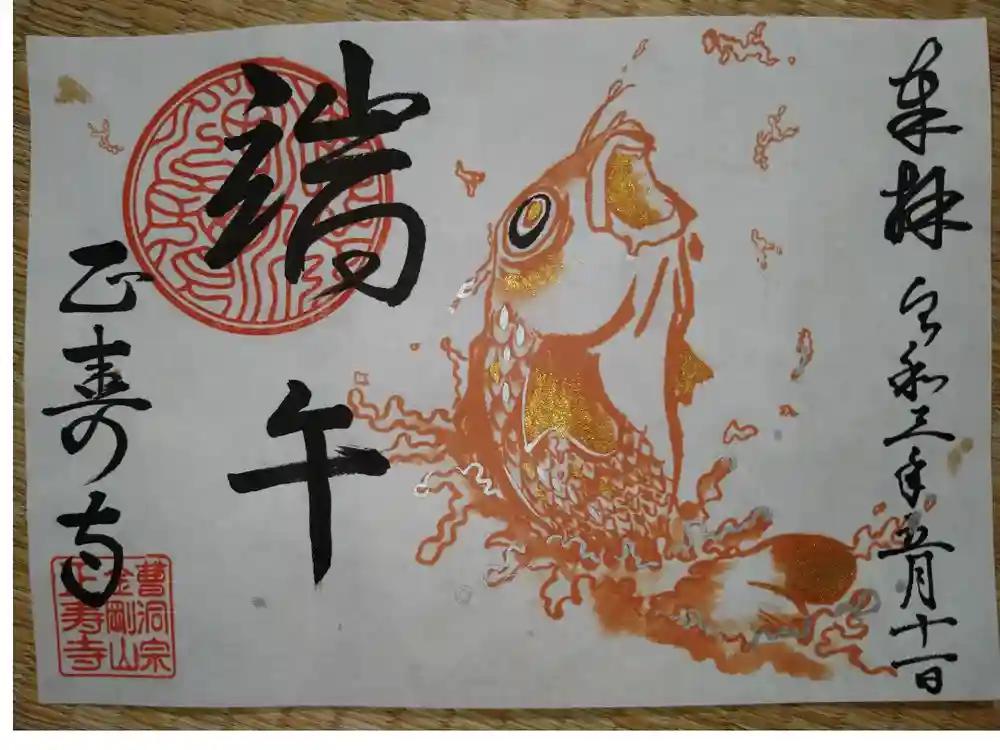 奉拝
令和三年五月十一日
端午
正寿寺
曹洞宗
金剛山
正寿寺